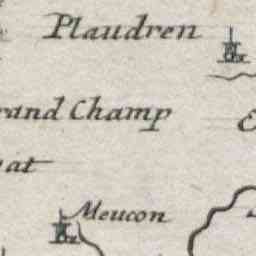 Plaudren
rand Champ
at
Meucon